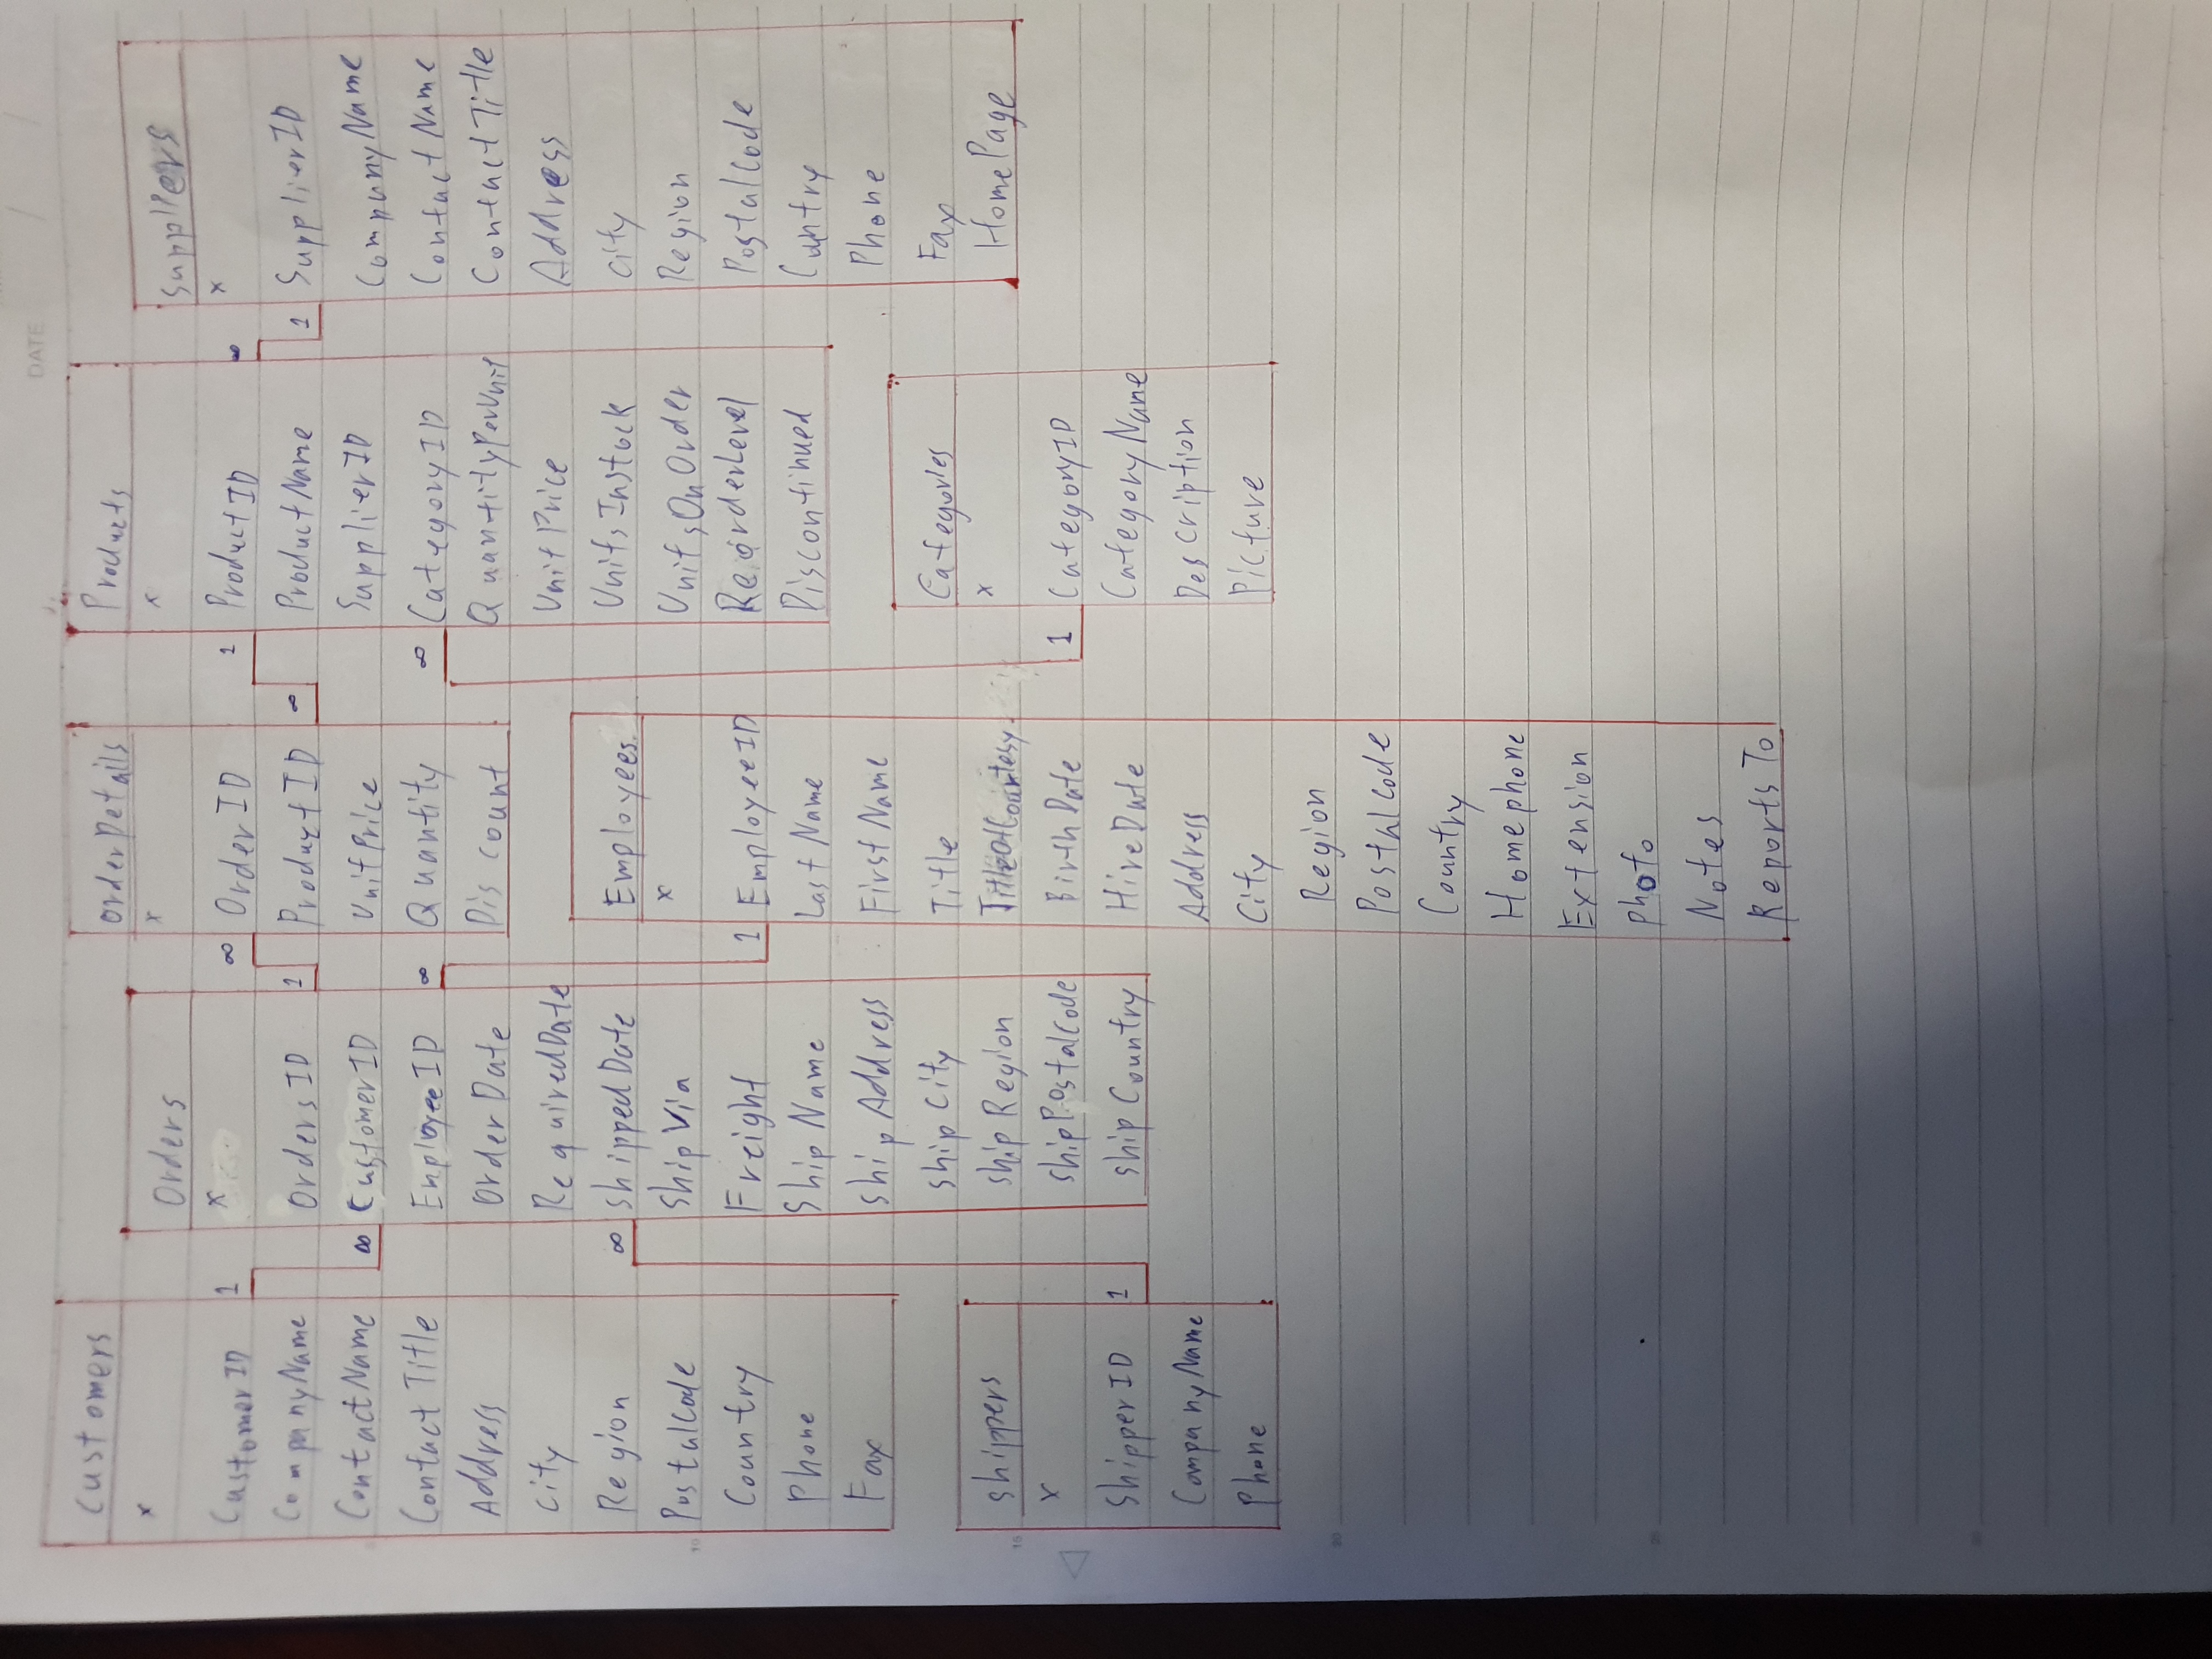 DATE / /
Customers
x
CustomerID 1
CompanyName
ContactName
Contact Title
Address
City
Region
PostalCode
Country
Phone
Fax
shippers
x
ShipperID 1
CompanyName
Phone
Orders
x
OrdersID 1
∞ CustomerID
EmployeeID ∞
Order Date
RequiredDate
∞ ShippedDate
Ship Via
Freight
Ship Name
ship Address
ship City
ship Region
ship PostalCode
ship Country
OrderDetails
x
∞ OrderID
ProductID ∞
UnitPrice
Quantity
Discount
Employees
x
1 EmployeeID
Last Name
First Name
Title
TitleOfCourtesy
Birth Date
HireDate
Address
City
Region
Postalcode
Country
Homephone
Extension
photo
Notes
Reports To
Products
x
1 ProductID ∞
ProductName
SupplierID
∞ CategoryID
QuantityPerUnit
Unit Price
UnitsInstock
UnitsOnOrder
ReorderLevel
Discontinued
Categories
x
1 CategoryID
CategoryName
Description
Picture
Suppliers
x
1 SupplierID
CompanyName
ContactName
Contact Title
Address
City
Region
PostalCode
Country
Phone
Fax
HomePage
10
15
20
25
30